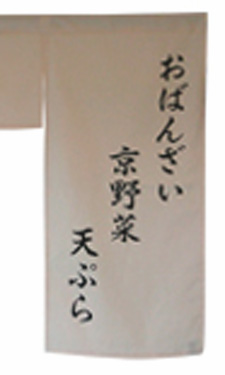 おばんざい
京野菜
天ぷら